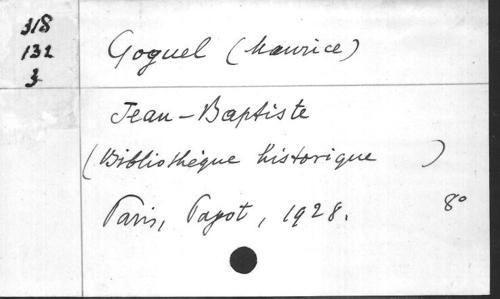 318
132
3
Goguel (Maurice)
Jean-Baptiste
(Bibliothèque historique )
Paris, Payot, 1928. 8°